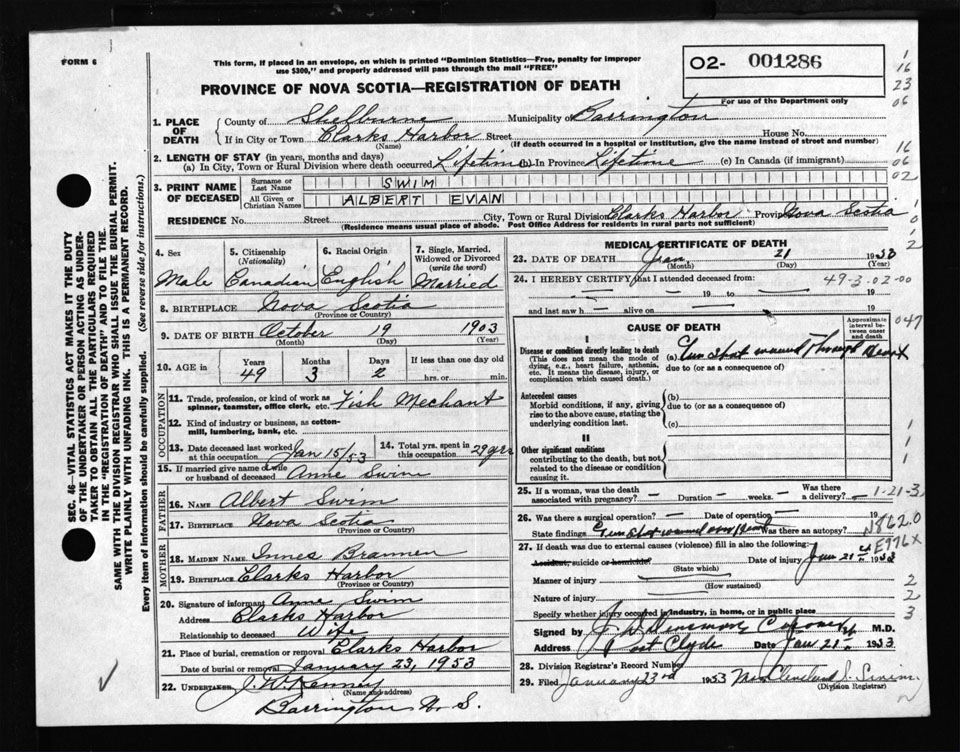 FORM 6
This form, if placed in an envelope, on which is printed "Dominion Statistics—Free, penalty for improper
use $300," and properly addressed will pass through the mail "FREE"
PROVINCE OF NOVA SCOTIA—REGISTRATION OF DEATH
02- 001286
For use of the Department only
16
23
06
16
06
02
1. PLACE OF DEATH
County of Shelburne Municipality of Barrington
If in City or Town Clarks Harbor Street House No.
(Name) (If death occurred in a hospital or institution, give the name instead of street and number)
2. LENGTH OF STAY (in years, months and days)
(a) In City, Town or Rural Division where death occurred Lifetime (b) In Province Lifetime (c) In Canada (if immigrant)
3. PRINT NAME OF DECEASED
Surname or Last Name SWIM
All Given or Christian Names ALBERT EVAN
RESIDENCE No. Street City, Town or Rural Division Clarks Harbor Province Nova Scotia
(Residence means usual place of abode. Post Office Address for residents in rural parts not sufficient)
4. Sex
Male
5. Citizenship
(Nationality)
Canadian
6. Racial Origin
English
7. Single, Married, Widowed or Divorced
(write the word)
Married
8. BIRTHPLACE Nova Scotia
(Province or Country)
9. DATE OF BIRTH October 19 1903
(Month) (Day) (Year)
10. AGE in Years Months Days If less than one day old
49 3 2 hrs. or min.
OCCUPATION
11. Trade, profession, or kind of work as
spinner, teamster, office clerk, etc. Fish Mechant
12. Kind of industry or business, as cotton-
mill, lumbering, bank, etc.
13. Date deceased last worked
at this occupation Jan 15/53
14. Total yrs. spent in
this occupation 29 yrs
15. If married give name of wife
or husband of deceased Anne Swim
FATHER
16. NAME Albert Swim
17. BIRTHPLACE Nova Scotia
(Province or Country)
MOTHER
18. MAIDEN NAME Innes Brannen
19. BIRTHPLACE Clarks Harbor
(Province or Country)
20. Signature of informant Anne Swim
Address Clarks Harbor
Relationship to deceased Wife
21. Place of burial, cremation or removal Clarks Harbor
Date of burial or removal January 23, 1953
22. UNDERTAKER J. W. Kenney
(Name and address)
Barrington N. S.
MEDICAL CERTIFICATE OF DEATH
23. DATE OF DEATH Jan 21 1953
(Month) (Day) (Year)
24. I HEREBY CERTIFY that I attended deceased from:
49-3-02-00
19 to 19
and last saw h alive on
047
CAUSE OF DEATH
Approximate interval between onset and death
I
Disease or condition directly leading to death
(This does not mean the mode of
dying, e.g., heart failure, asthenia,
etc. It means the disease, injury, or
complication which caused death.)
(a) Gun Shot wound through Heart
due to (or as a consequence of)
Antecedent causes
Morbid conditions, if any, giving
rise to the above cause, stating the
underlying condition last.
(b)
due to (or as a consequence of)
(c)
II
Other significant conditions
contributing to the death, but not
related to the disease or condition
causing it.
25. If a woman, was the death
associated with pregnancy? Duration weeks. Was there a delivery?
1-21-3
26. Was there a surgical operation? Date of operation 19
State findings Gun shot wound over heart Was there an autopsy?
N862.0
27. If death was due to external causes (violence) fill in also the following:
E976X
Accident, suicide or homicide Date of injury Jan 21 1953
(State which)
Manner of injury
(How sustained)
Nature of injury
Specify whether injury occurred in industry, in home, or in public place
2
2
3
Signed by Coroner M.D.
Address Port Clyde Date Jan 21 1953
28. Division Registrar's Record Number
29. Filed January 23rd 1953 Mrs Cleveland S. Swim
(Division Registrar)
SEC. 46—VITAL STATISTICS ACT MAKES IT THE DUTY
OF THE UNDERTAKER OR PERSON ACTING AS UNDER-
TAKER TO OBTAIN ALL THE PARTICULARS REQUIRED
IN THE "REGISTRATION OF DEATH" AND TO FILE THE
SAME WITH THE DIVISION REGISTRAR WHO SHALL ISSUE THE BURIAL PERMIT.
WRITE PLAINLY WITH UNFADING INK. THIS IS A PERMANENT RECORD.
Every item of information should be carefully supplied. (See reverse side for instructions.)